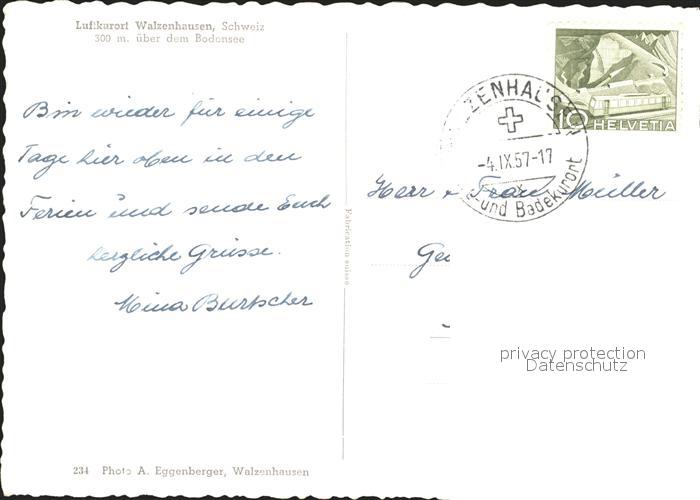 Luftkurort Walzenhausen, Schweiz
300 m. über dem Bodensee
Bin wieder für einige
Tage hier oben in den
Ferien und sende Euch
herzliche Grüsse.
Mina Burtscher
234 Photo A. Eggenberger, Walzenhausen
Fabrication suisse
10 HELVETIA
ZENHAUS
-4.IX.57-17
und Badekurort
Herr + Frau Müller
Ge
privacy protection
Datenschutz